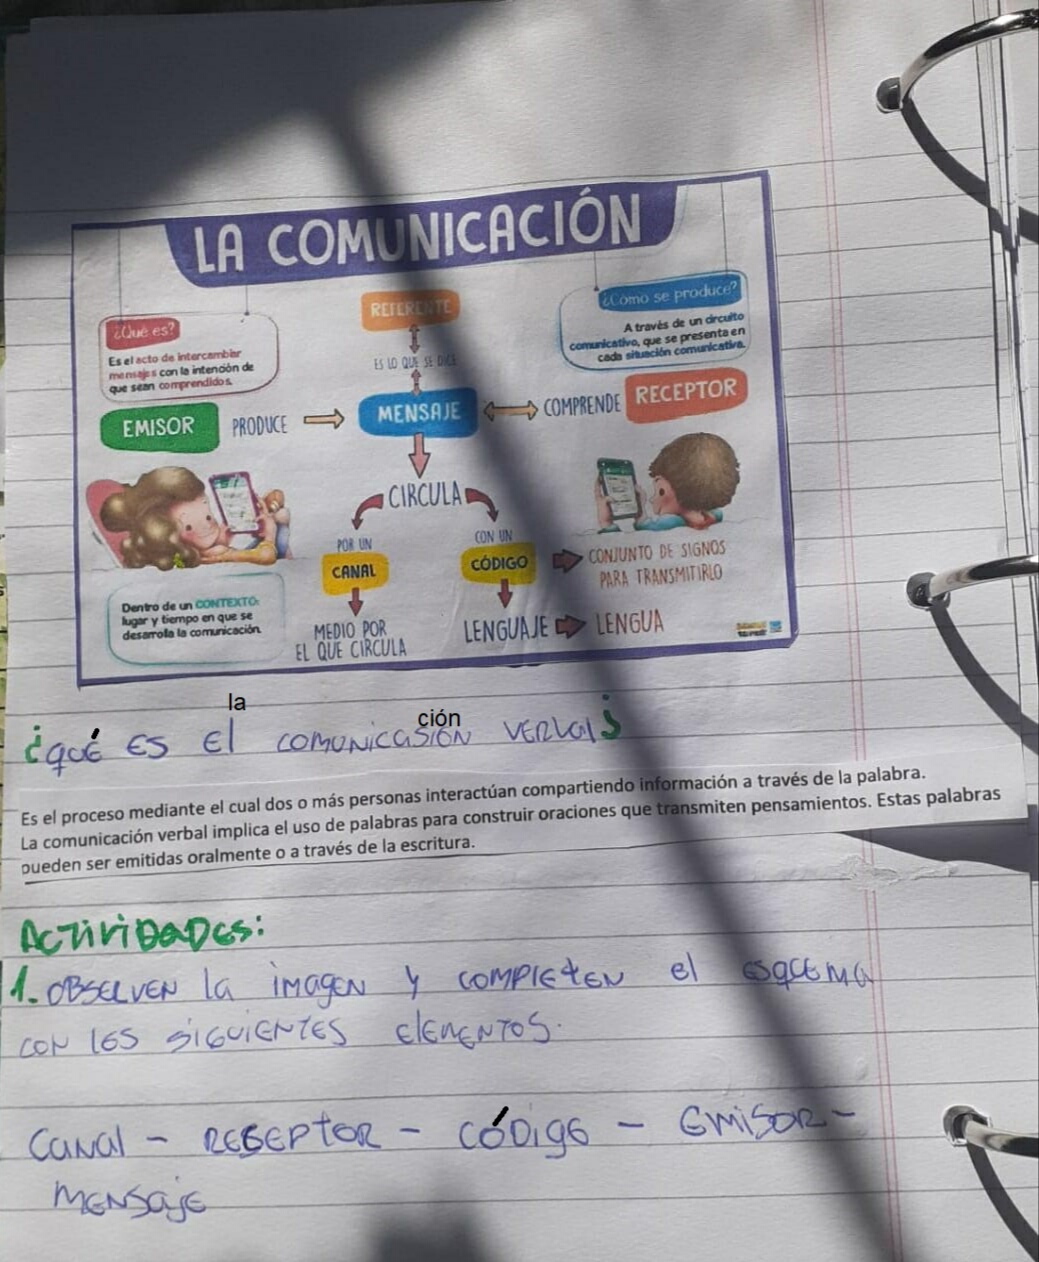 LA COMUNICACIÓN
¿Qué es?
Es el acto de intercambiar
mensajes con la intención de
que sean comprendidos.
REFERENTE
ES LO QUE SE DICE
¿Cómo se produce?
A través de un circuito
comunicativo, que se presenta en
cada situación comunicativa.
EMISOR PRODUCE MENSAJE COMPRENDE RECEPTOR
CIRCULA
POR UN
CANAL
MEDIO POR
EL QUE CIRCULA
CON UN
CÓDIGO
CONJUNTO DE SIGNOS
PARA TRANSMITIRLO
LENGUAJE LENGUA
Dentro de un CONTEXTO:
lugar y tiempo en que se
desarrolla la comunicación.
la
ción
¿qué ES El COMUNICASIÓN VERbal?
Es el proceso mediante el cual dos o más personas interactúan compartiendo información a través de la palabra.
La comunicación verbal implica el uso de palabras para construir oraciones que transmiten pensamientos. Estas palabras
pueden ser emitidas oralmente o a través de la escritura.
ACTiViDaDES:
1. OBSERVEN la imagEN y COMPlEtEN el EsqUEMa
CON lOS SIGUIENTES ElEMENTOS.
CaNal - RECEPtOR - CóDigO - EMiSOR -
MENSajE